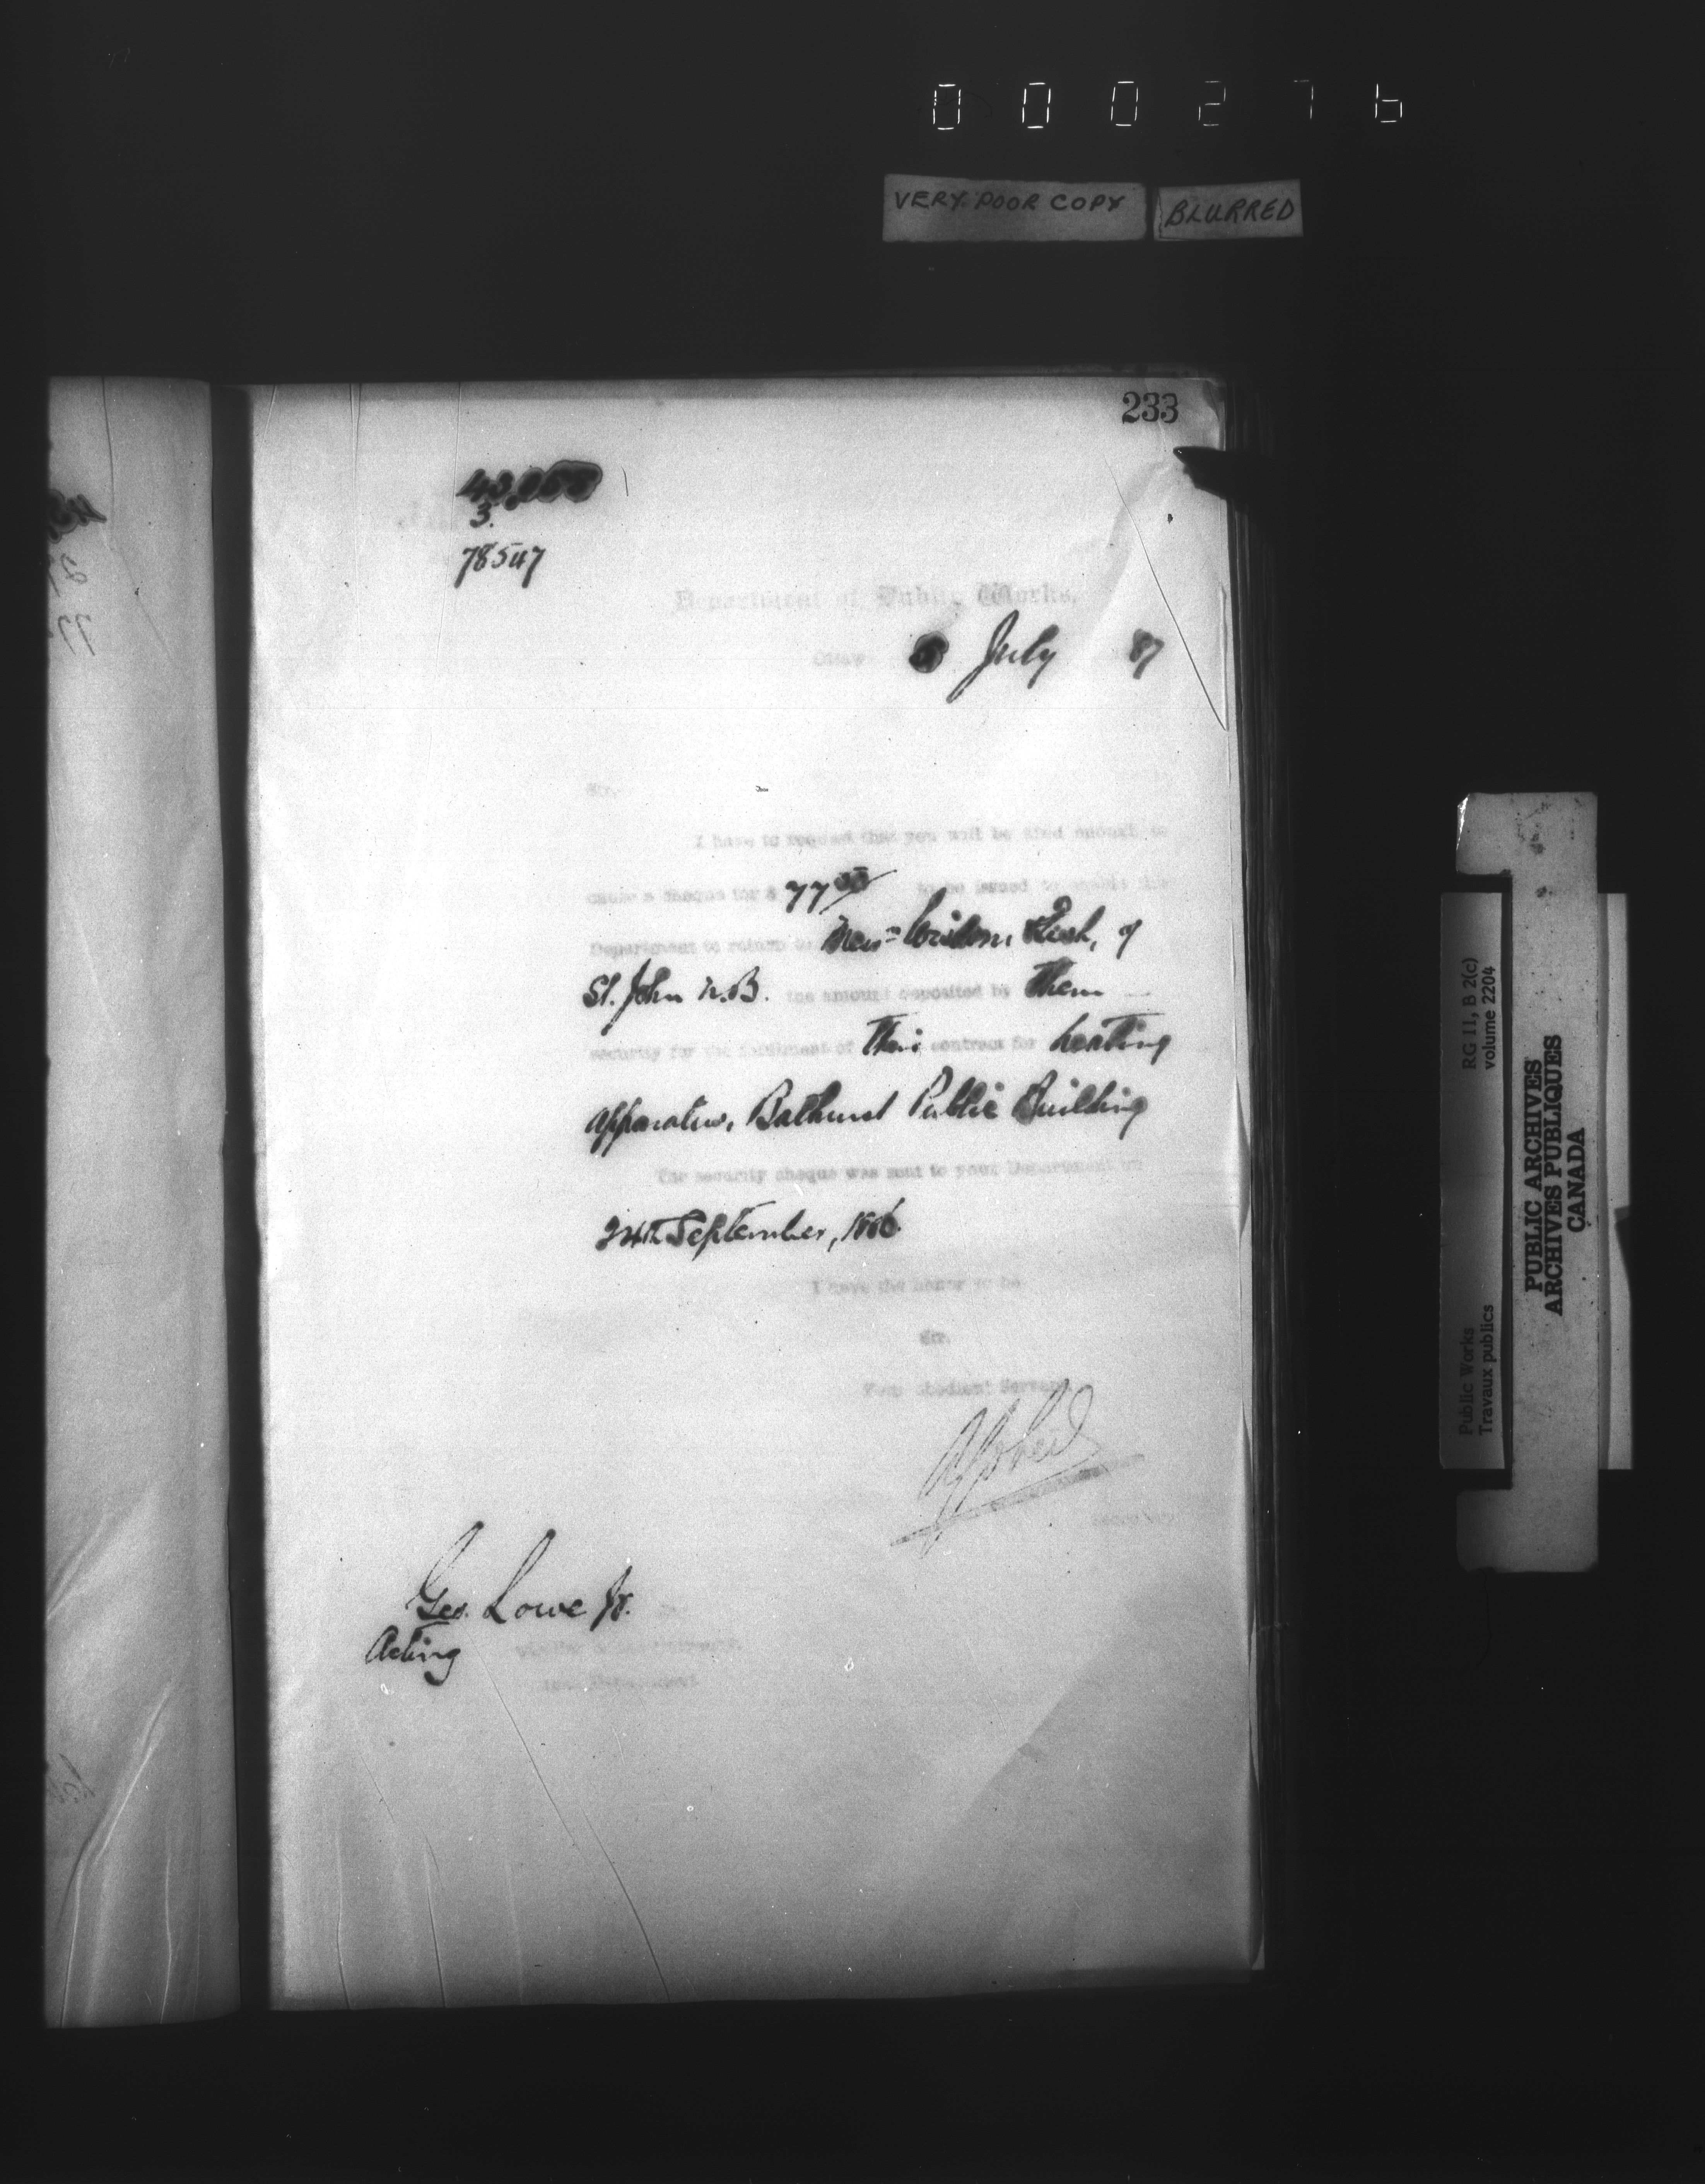 000276
VERY POOR COPY BLURRED
233
3.
78547
Department of Public Works,
July 87
Sir,
I have to request that you will be good enough to
cause a cheque for $ 77.00 to be issued to enable this
Department to return to Mess=
St. John N.B. the amount deposited by them
security for the fulfilment of their contract for heating
apparatus, Bathurst Public Building
The security cheque was sent to your Department on
24th September, 1886.
I have the honor to be
Sir,
Your obedient Servant
Secretary
Geo. Lowe Jr.
Acting
RG 11, B 2(c)
volume 2204
Public Works
Travaux publics
PUBLIC ARCHIVES
ARCHIVES PUBLIQUES
CANADA